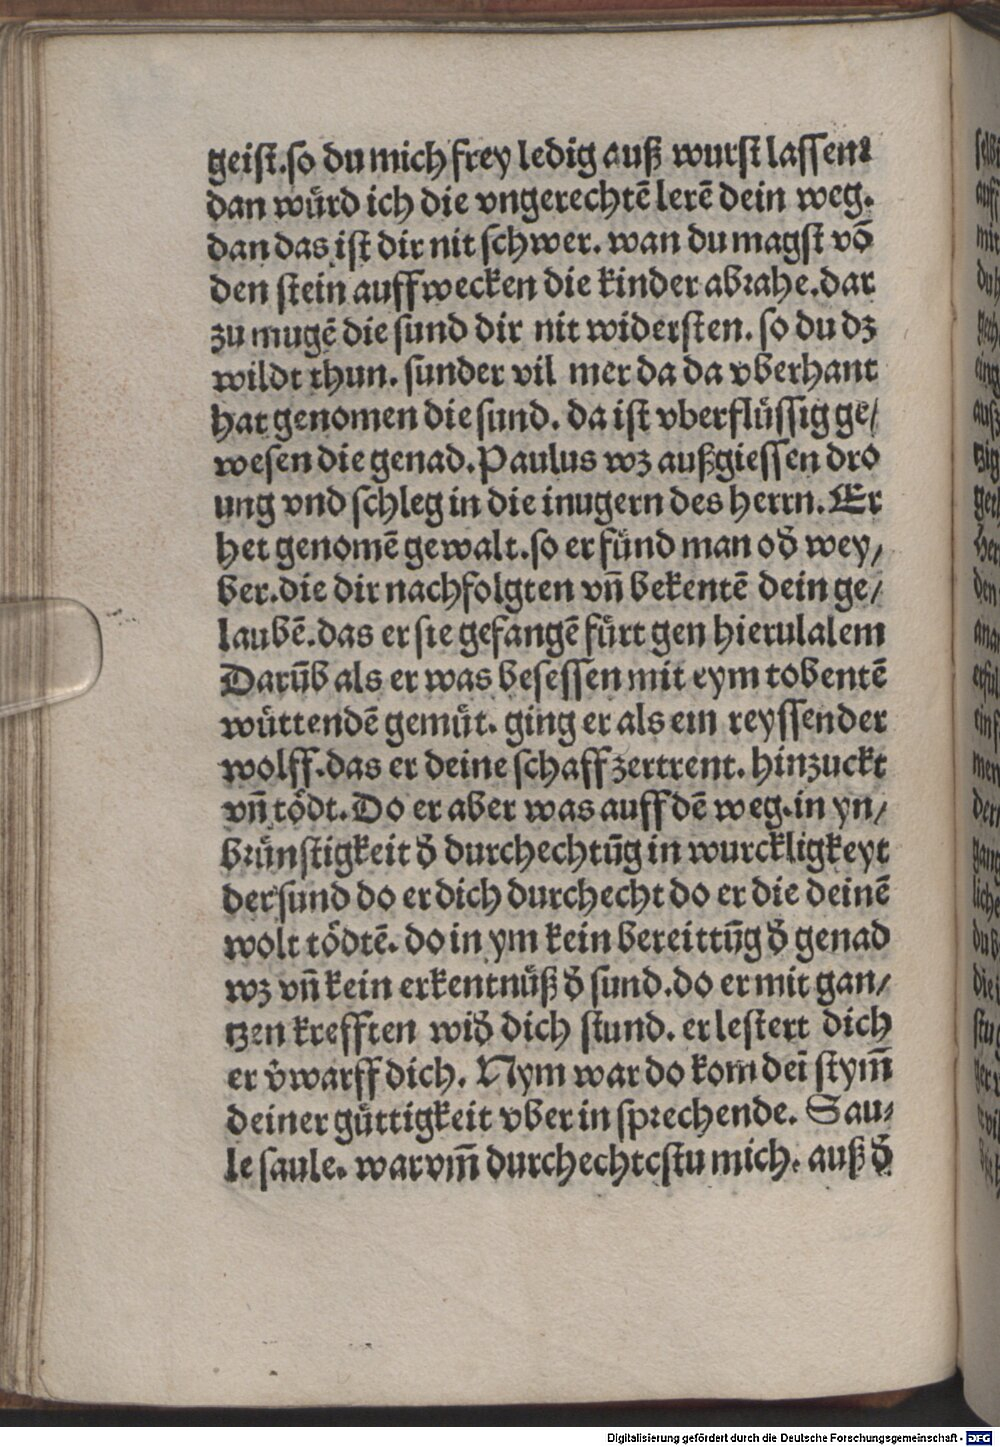 geist.so du mich frey ledig auß wurst lassen:
dan wuͤrd ich die vngerechtē lerē dein weg.
dan das ist dir nit schwer. wan du magst vō
den stein auffwecken die kinder abrahe.dar
zu mugē die sund dir nit widersten. so du dz
wildt thun. sunder vil mer da da vberhant
hat genomen die sund. da ist vberfluͤssig ge/
wesen die genad.Paulus wz außgiessen dro
ung vnd schleg in die inugern des herrn. Er
het genomē gewalt.so er fuͤnd man od̄ wey/
ber.die dir nachfolgten vn̄ bekentē dein ge/
laubē.das er sie gefangē fuͤrt gen hierulalem
Darūb als er was besessen mit eym tobentē
wuͤttendē gemuͤt. ging er als ein reyssender
wolff.das er deine schaff zertrent. hinzuckt
vn̄ toͤdt. Do er aber was auff dē weg.in yn/
bruͤnstigkeit d̄ durchechtūg in wurckligkeyt
der sund do er dich durchecht do er die deinē
wolt toͤdtē. do in ym kein bereittūg d̄ genad
wz vn̄ kein erkentnuͤß d̄ sund.do er mit gan/
tzen krefften wid̄ dich stund. er lestert dich
er v̄warff dich. Nym war do kom deī stym̄
deiner guͤttigkeit vber in sprechende. Sau/
le saule. warvm̄ durchechtestu mich. auß d̄
Digitalisierung gefördert durch die Deutsche Forschungsgemeinschaft - DFG